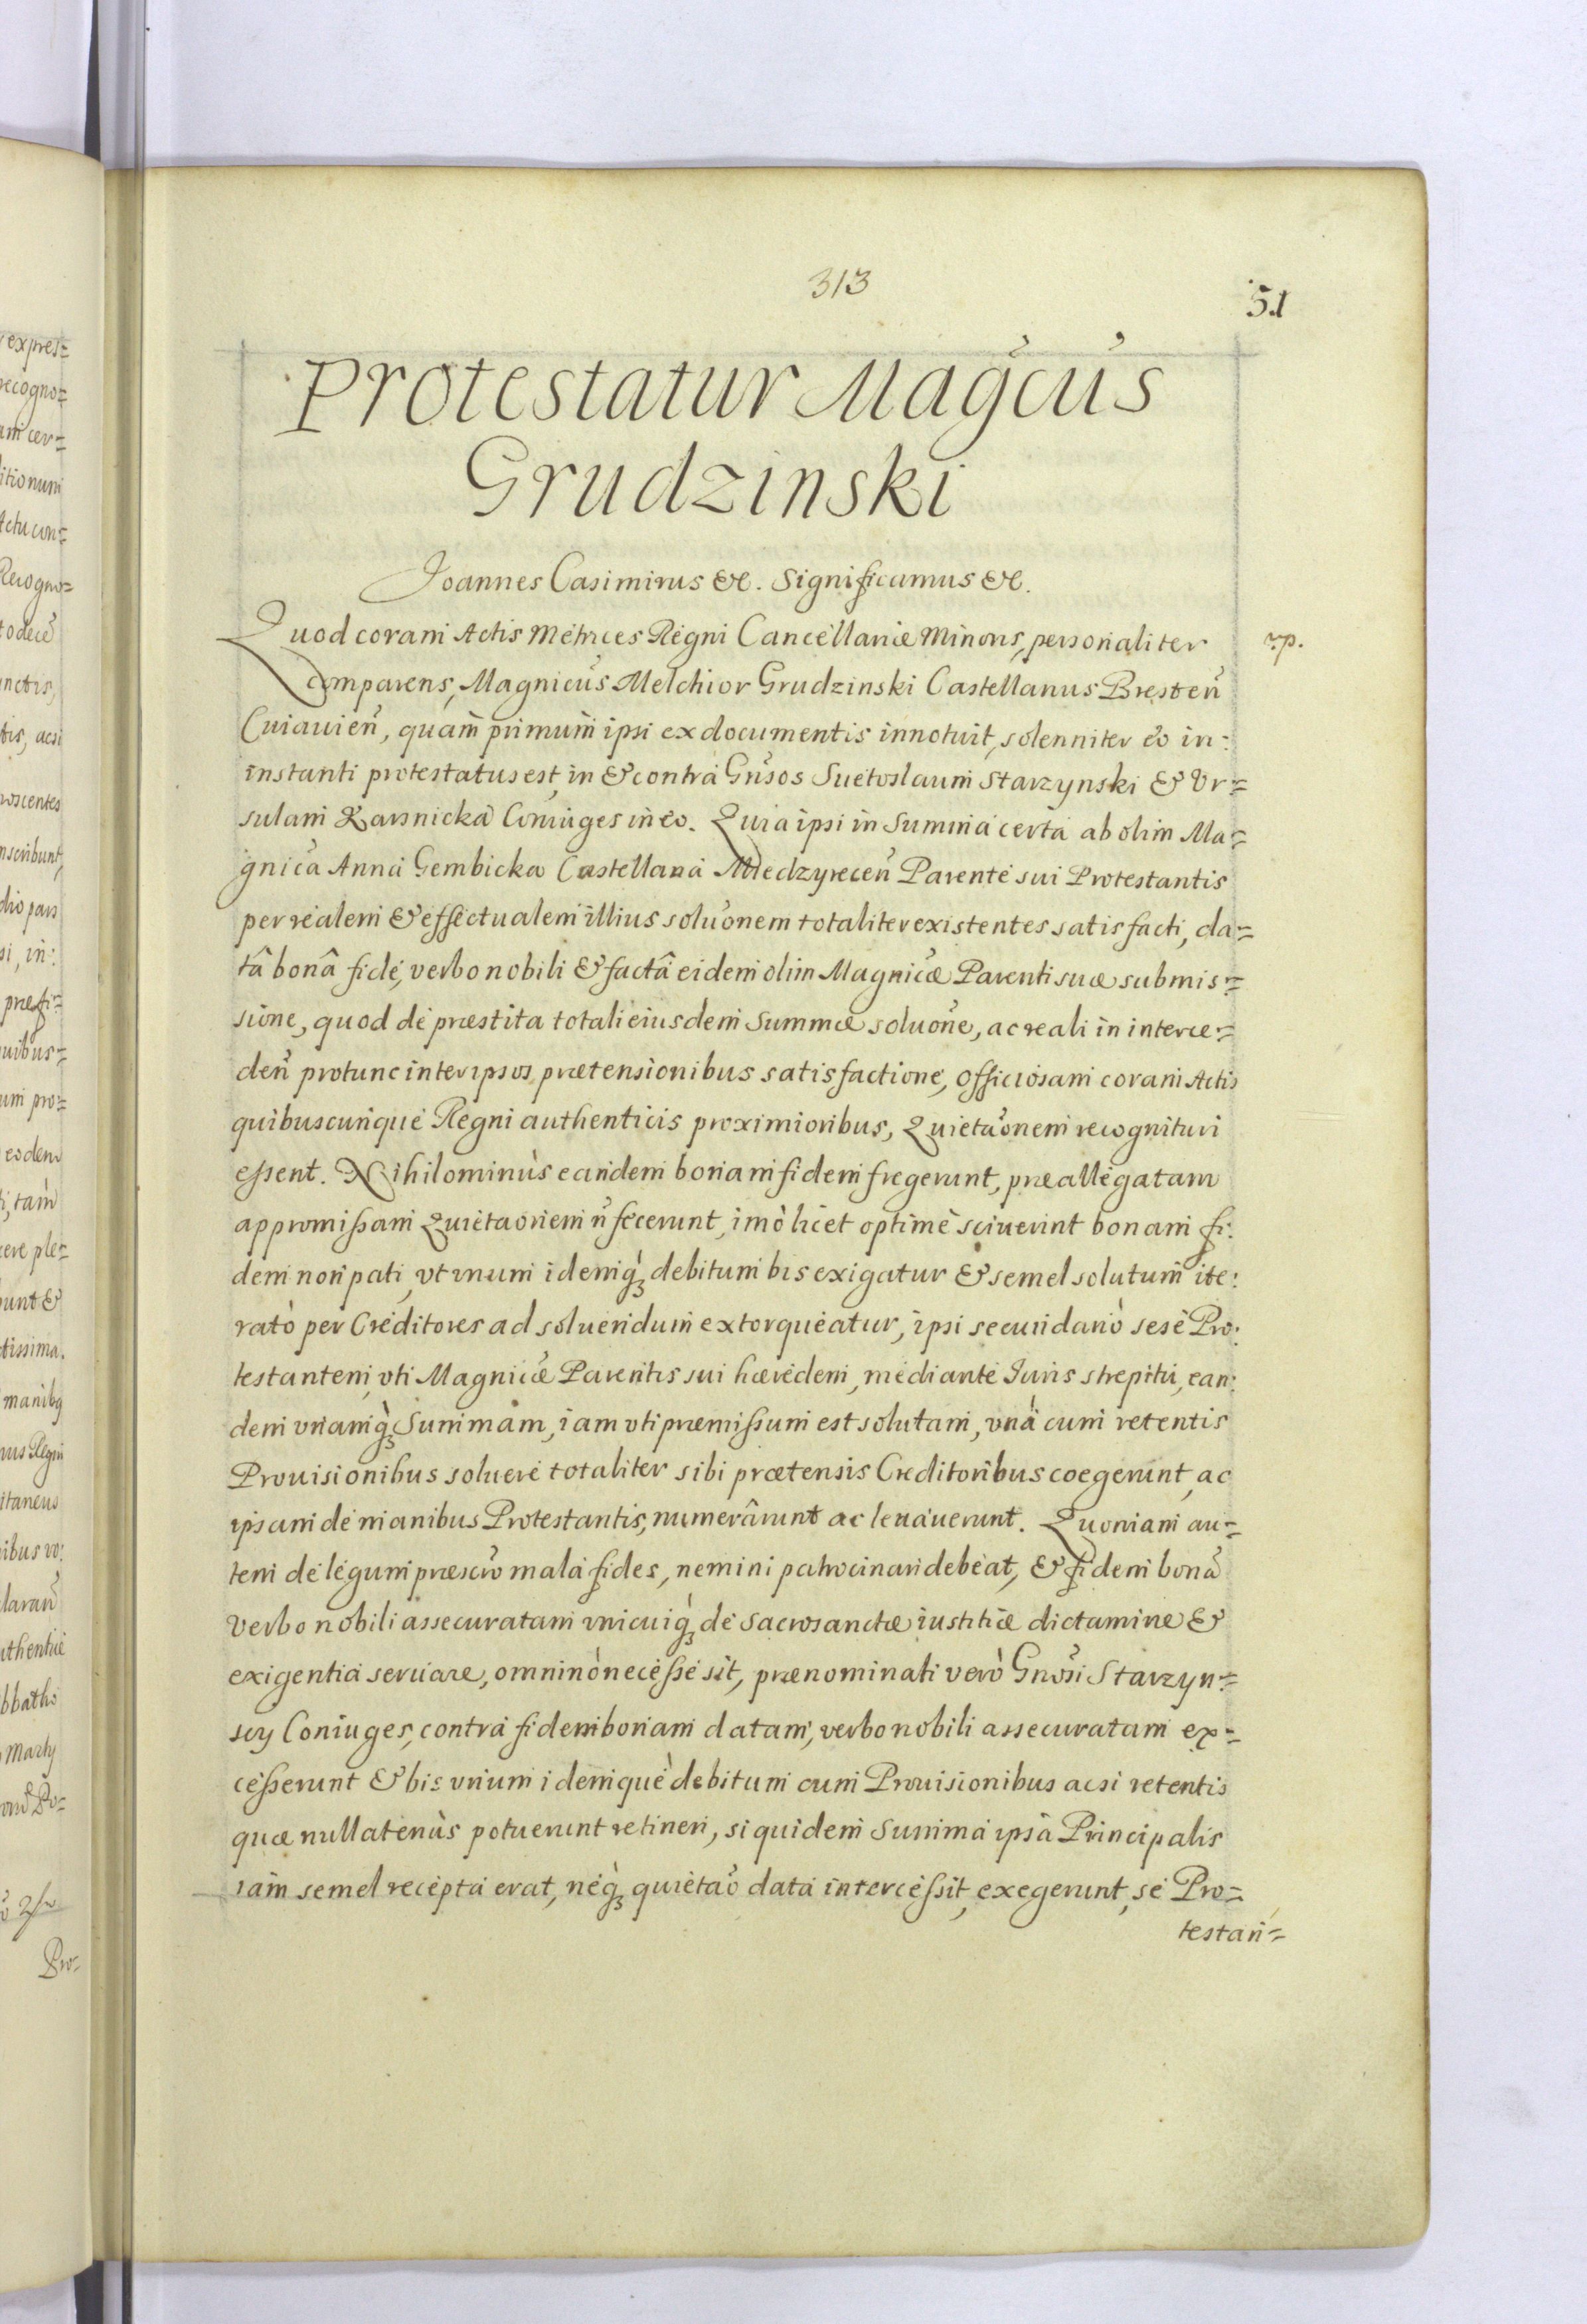 313
51
Protestatur Magcus
Grudzinski
Joannes Casimirus &c. Significamus &c.
Quod coram Actis Metrices Regni Cancellariæ Minoris, personaliter
rp.
comparens, Magnicus Melchior Grudzinski Castellanus Bresten
Cuiauien, quam primum ipsi ex documentis innotuit, solenniter eo in:
instanti protestatus est, in & contra Gnsos Suetoslaum Starzynski & Ur=
sulam Karsnicka Coniuges in eo. Quia ipsi in Summa certa ab olim Ma=
gnica Anna Gembicka Castellana Miedzyrecen Parente sui Protestantis
per realem & effectualem illius soluonem totaliter existentes satisfacti, da=
tâ bonâ fide, verbo nobili & factâ eidem olim Magnicæ Parenti suæ submis=
sione, quod de præstita totali eiusdem Summæ soluone, ac reali in interce=
den protunc inter ipsos prætensionibus satisfactione, Officiosam coram Actis
quibuscunque Regni authenticis proximioribus, Quietuonem recognituri
essent. Nihilominùs eandem bonam fidem fregerunt, præallegatam
appromissam Quietaonem n fecerunt, imò licet optimè sciuerint bonam fi:
dem non pati, vt vnum idemq; debitum bis exigatur & semel solutum ite:
ratò per Creditores ad soluendum extorqueatur, ipsi secundariò sese Pro:
testantem, vti Magnicæ Parentis sui hæredem, mediante Iuris strepitu, ean:
dem vnamq; Summam, iam vti præmissum est solutam, vnà cum retentis
Prouisionibus soluere totaliter sibi prætensis Creditoribus coegerunt, ac
ipsam de manibus Protestantis, numerârunt ac leuauerunt. Quoniam au=
tem de legum præscro mala fides, nemini patrocinari debeat, & fidem bona
verbo nobili assecuratam vnicuiq; de sacrosanctæ iustitiæ dictamine &
exigentia seruare, omninò necesse sit, prænominati verò Gnosi Starzyn=
scy Coniuges, contra fidem bonam datam, verbo nobili assecuratam ex=
cesserunt & bis vnum idemquè debitum cum Prouisionibus acsi retentis
quæ nullatenùs potuerunt retineri, siquidem Summa ipsa Principalis
iam semel recepta erat, neq; quietao data intercessit, exegerunt, se Pro=
testan=